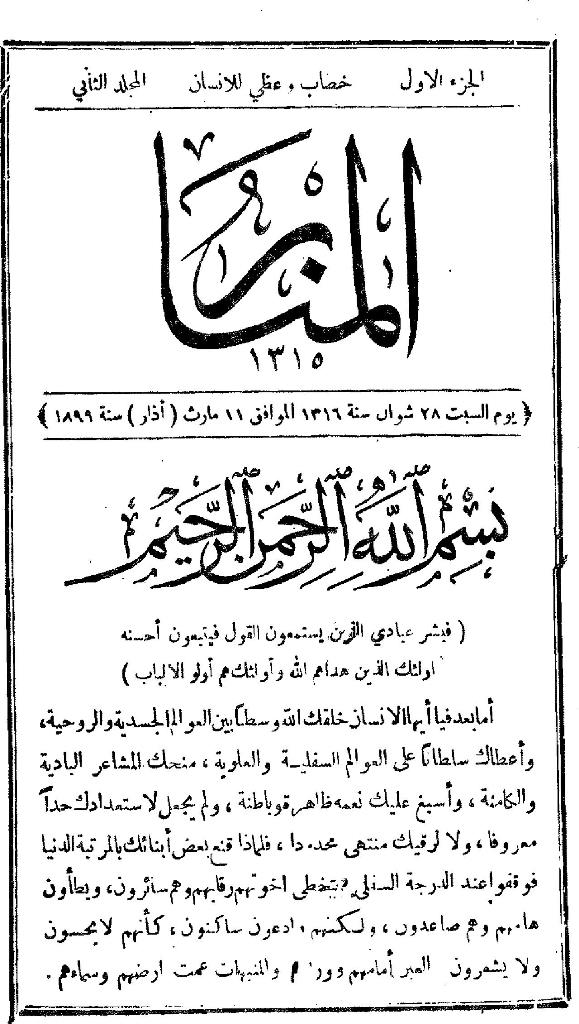 الجزء الاول خطاب وعظي للانسان المجلد الثاني
المنار
١٣١٥
﴿ يوم السبت ٢٨ شوال سنة ١٣١٦ الموافق ١١ مارث ( أذار ) سنة ١٨٩٩ ﴾
بِسْمِ اللهِ الرَّحْمٰنِ الرَّحِيمِ
( فبشر عبادي الذين يستمعون القول فيتبعون أحسنه
اولئك الذين هداهم الله وأولئك هم أولو الالباب )
أما بعد فيا أيها الانسان خلقك الله وسطا بين العوالم الجسدية والروحية ،
وأعطاك سلطانا على العوالم السفلية والعلوية ، منحك المشاعر البادية
والكامنة ، وأسبغ عليك نعمه ظاهرة وباطنة ، ولم يجعل لاستعدادك حداً
معروفا ، ولا لرقيك منتهى محدودا ، فلماذا قنع بعض أبنائك بالمرتبة الدنيا
فوقفوا عند الدرجة السفلى يتخطى اخوتهم رقابهم وهم سائرون ، ويطأون
هامهم وهم صاعدون ، ولكنهم وادعون ساكنون ، كأنهم لا يحسون
ولا يشعرون العبر أمامهم والمنبهات عمت ارضهم وسماءهم .